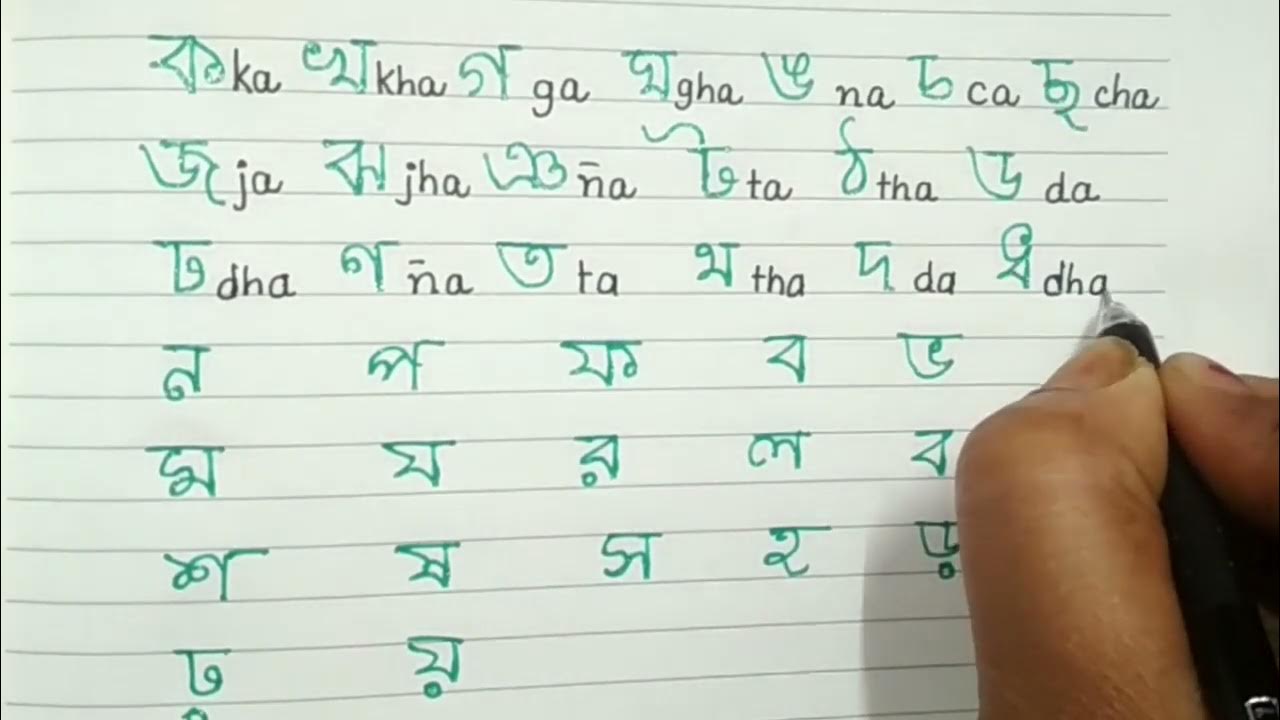 ক ka খ kha গ ga ঘ gha ঙ na চ ca ছ cha
জ ja ঝ jha ঞ n̄a ট ta ঠ tha ড da
ঢ dha ণ n̄a ত ta থ tha দ da ধ dha
ন প ফ ব ভ
ম য র ল ব
শ ষ স হ ড়
ঢ় য়